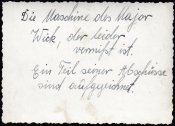 Die Maschine des Major
Wick, der leider
vermißt ist.
Ein Teil seiner Abschüsse
sind aufgezeichnet.